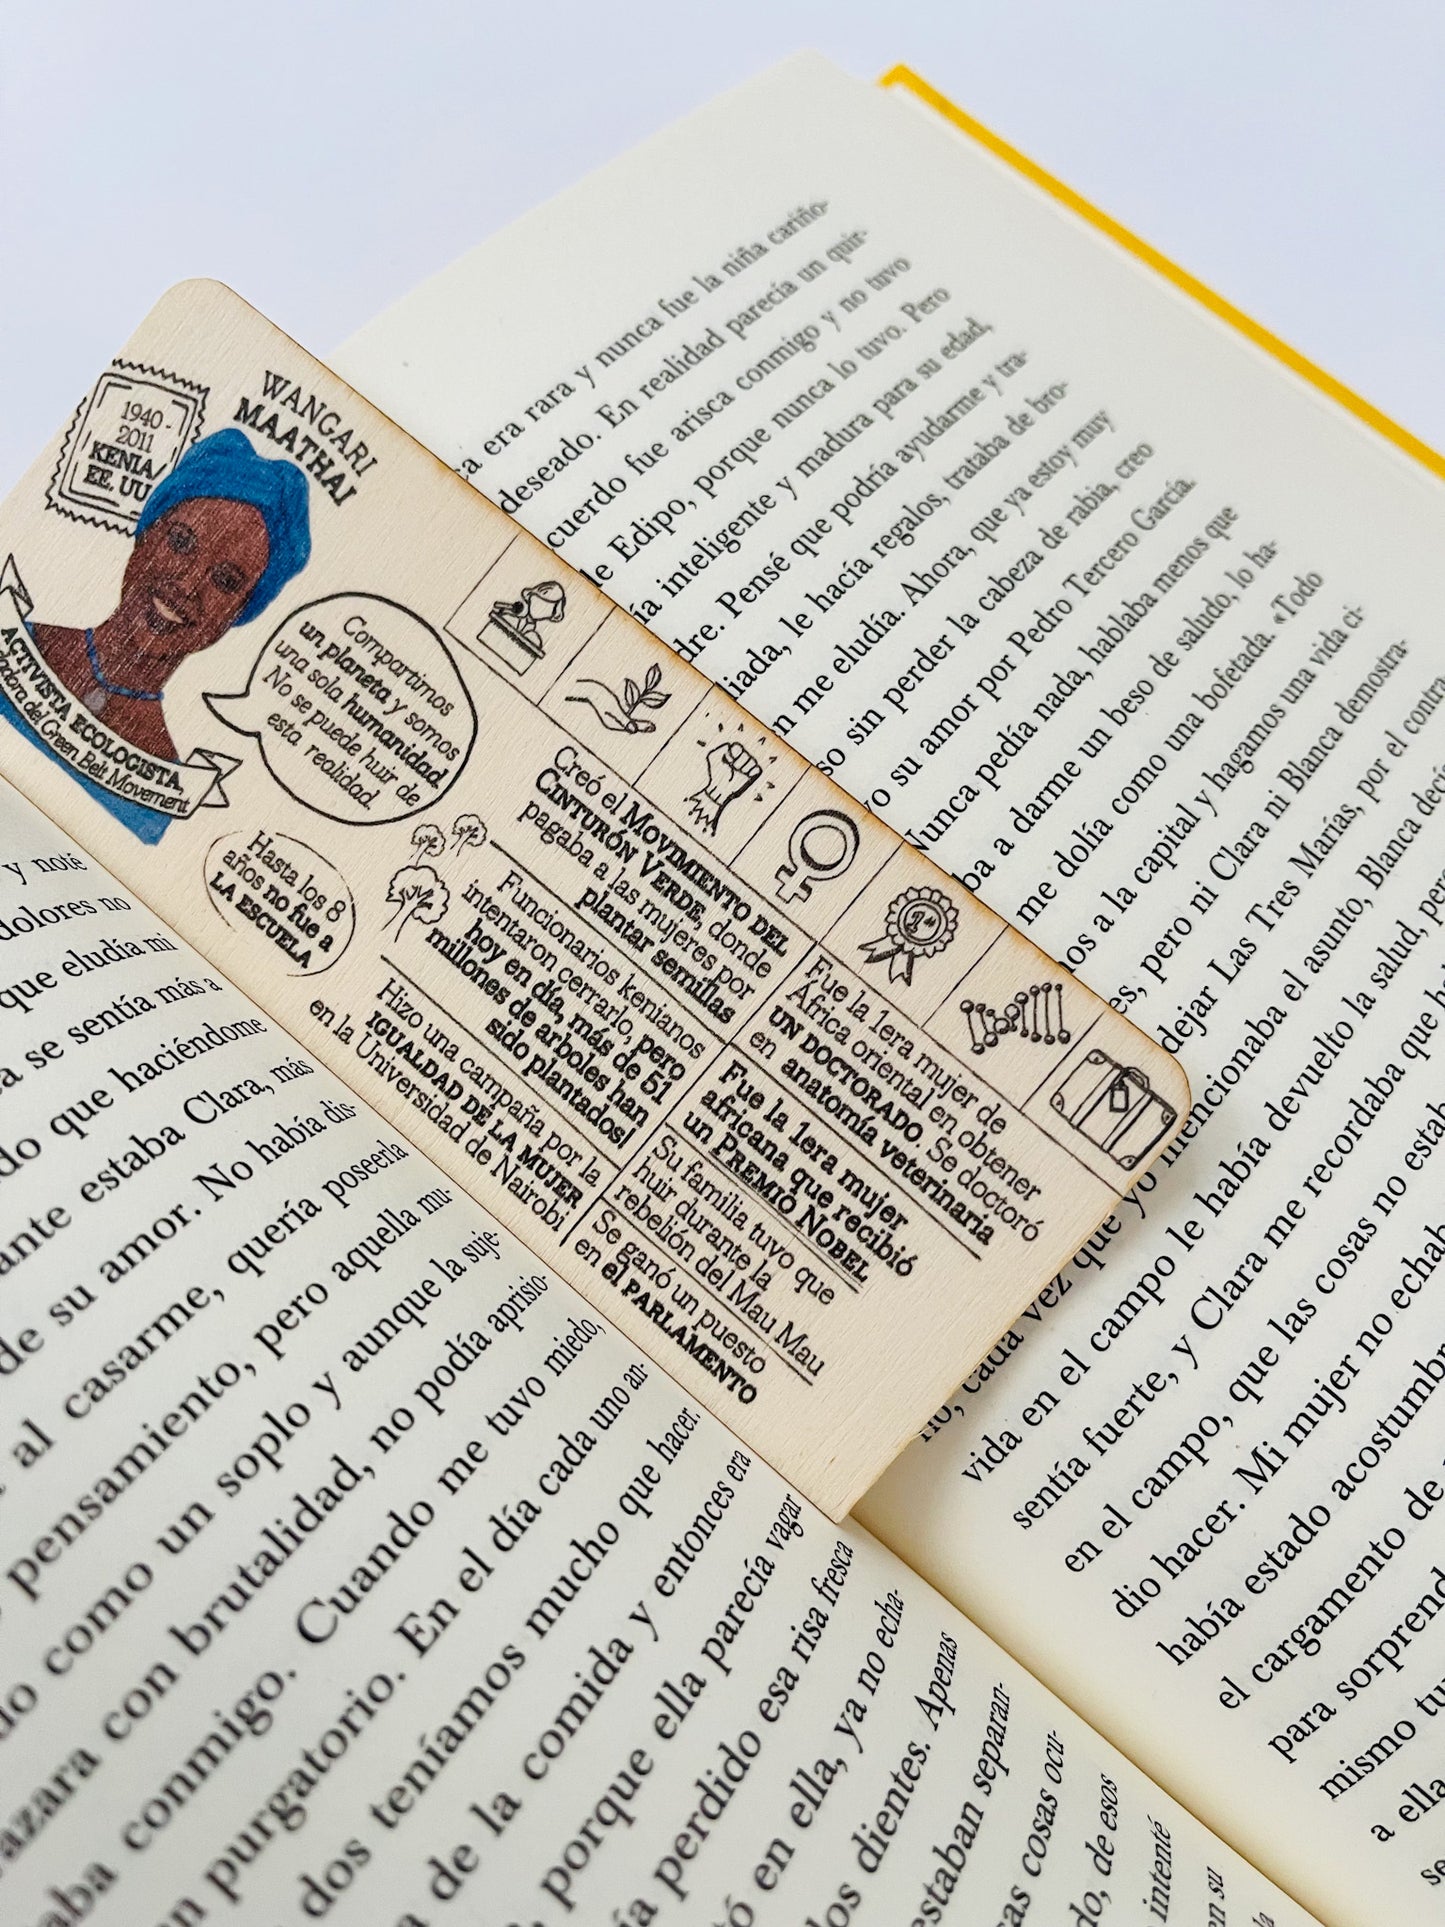 WANGARI
MAATHAI
1940 -
2011
KENIA/
EE. UU
ACTIVISTA ECOLOGISTA,
del Green Belt Movement
Compartimos
un planeta y somos
una sola humanidad
No se puede huir de
esta realidad.
Hasta los 8
años no fue a
LA ESCUELA
Creó el MOVIMIENTO DEL
CINTURÓN VERDE, donde
pagaba a las mujeres por
plantar semillas
Funcionarios kenianos
intentaron cerrarlo, pero
hoy en día, más de 51
millones de arboles han
sido plantados!
Hizo una campaña por la
IGUALDAD DE LA MUJER
en la Universidad de Nairobi
Fue la 1era mujer de
África oriental en obtener
UN DOCTORADO. Se doctoró
en anatomía veterinaria
Fue la 1era mujer
africana que recibió
un PREMIO NOBEL
Su familia tuvo que
huir durante la
rebelión del Mau Mau
Se ganó un puesto
en el PARLAMENTO
era rara y nunca fue la niña cariño-
deseado. En realidad parecía un quir-
cuerdo fue arisca conmigo y no tuvo
le Edipo, porque nunca lo tuvo. Pero
ía inteligente y madura para su edad,
dre. Pensé que podría ayudarme y tra-
iada, le hacía regalos, trataba de bro-
n me eludía. Ahora, que ya estoy muy
so sin perder la cabeza de rabia, creo
vo su amor por Pedro Tercero García.
Nunca pedía nada, hablaba menos que
ba a darme un beso de saludo, lo ha-
me dolía como una bofetada. «Todo
mos a la capital y hagamos una vida ci-
es, pero ni Clara ni Blanca demostra-
dejar Las Tres Marías, por el contra
mencionaba el asunto, Blanca decí
vida en el campo le había devuelto la salud, per
sentía fuerte, y Clara me recordaba que h
en el campo, que las cosas no estab
dio hacer. Mi mujer no echab
había estado acostumbr
el cargamento de
para sorprend
mismo tu
a ella
se
y noté
dolores no
que eludía mi
a se sentía más a
do que haciéndome
ante estaba Clara, más
de su amor. No había dis-
al casarme, quería poseerla
pensamiento, pero aquella mu-
como un soplo y aunque la suje-
azara con brutalidad, no podía aprisio-
aba conmigo. Cuando me tuvo miedo,
n purgatorio. En el día cada uno an-
dos teníamos mucho que hacer.
a de la comida y entonces era
porque ella parecía vagar
ía perdido esa risa fresca
tó en ella, ya no echa-
los dientes. Apenas
estaban separan-
sas cosas ocu-
do, de esos
intenté
en su